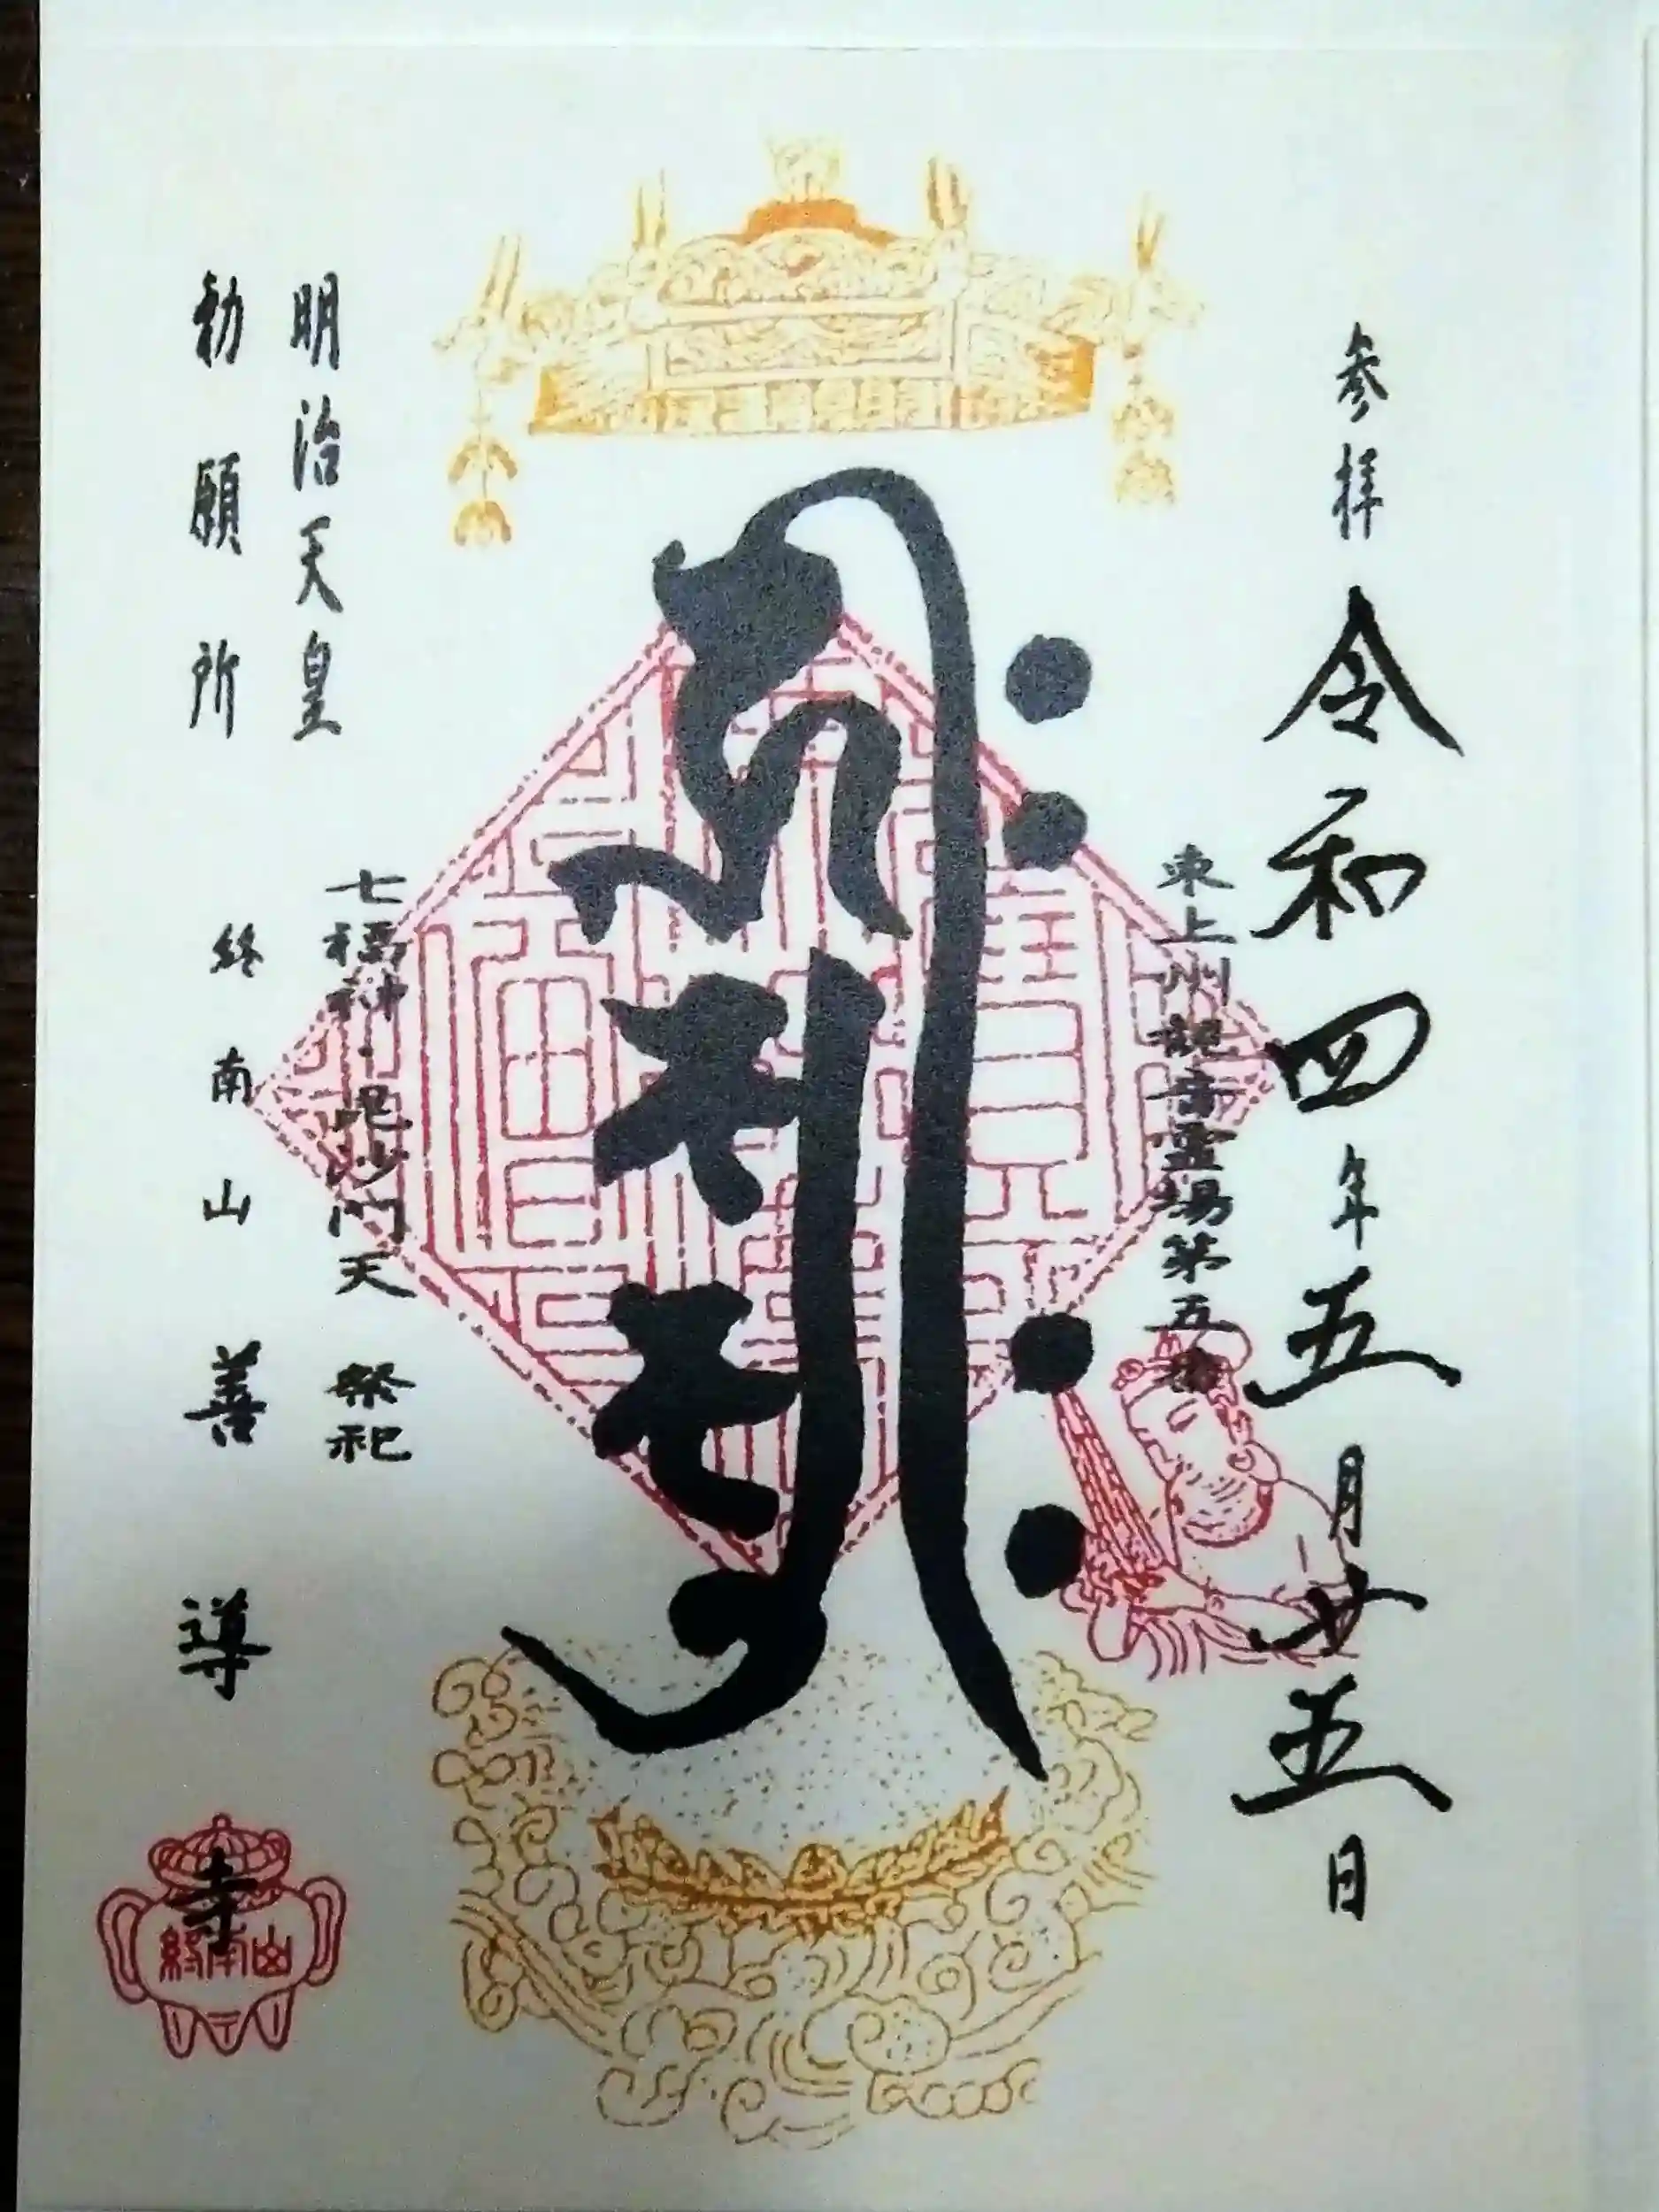 参拝 令和四年五月廿五日
東上州観音霊場第五番
明治天皇
勅願所
七福神・毘沙門天 祭祀
終南山 善導寺
終南山